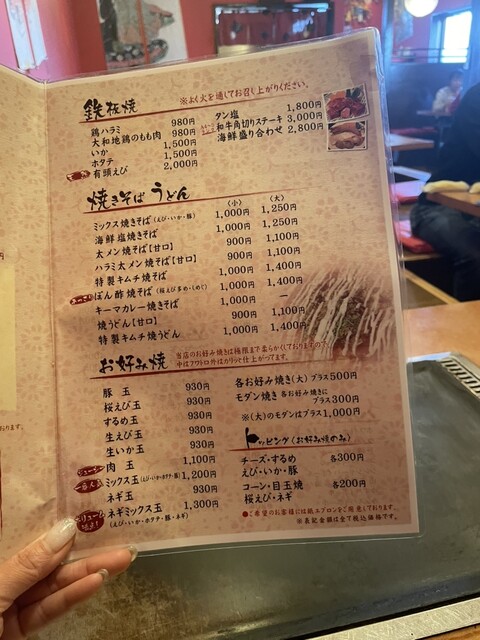 鉄板焼
※よく火を通してお召し上がりください。
鶏ハラミ 980円
大和地鶏のもも肉 980円
いか 1,500円
ホタテ 1,500円
有頭えび 2,000円
タン塩 1,800円
和牛角切りステーキ 3,000円
海鮮盛り合わせ 2,800円
焼きそば うどん
(小) (大)
ミックス焼きそば(えび・いか・豚) 1,000円 1,250円
海鮮塩焼きそば 1,000円 1,250円
太メン焼そば【甘口】 900円 1,100円
ハラミ太メン焼そば【甘口】 900円 1,100円
特製キムチ焼そば 1,000円 1,400円
ぽん酢焼そば(桜えび多め・しめじ) 1,000円 1,400円
キーマカレー焼きそば 1,000円 —
焼うどん【甘口】 900円 1,100円
特製キムチ焼うどん 1,000円 1,400円
お好み焼
当店のお好み焼きは極限まで柔らかくしておりますので
中はフワトロ外はカリッと仕上がってます。
豚玉 930円
桜えび玉 930円
するめ玉 930円
生えび玉 930円
生いか玉 930円
肉玉 1,100円
ミックス玉(えび・いか・ホタテ・豚) 1,200円
ネギ玉 930円
ネギミックス玉 1,300円
(えび・いか・ホタテ・豚・ネギ)
各お好み焼き(大)プラス500円
モダン焼き 各お好み焼きにプラス300円
※(大)のモダンはプラス1,000円
トッピング(お好み焼のみ)
チーズ・するめ 各300円
えび・いか・豚
コーン・目玉焼 各200円
桜えび・ネギ
●ご希望のお客様には紙エプロンをご用意しております。
※表記金額は全て税込価格です。